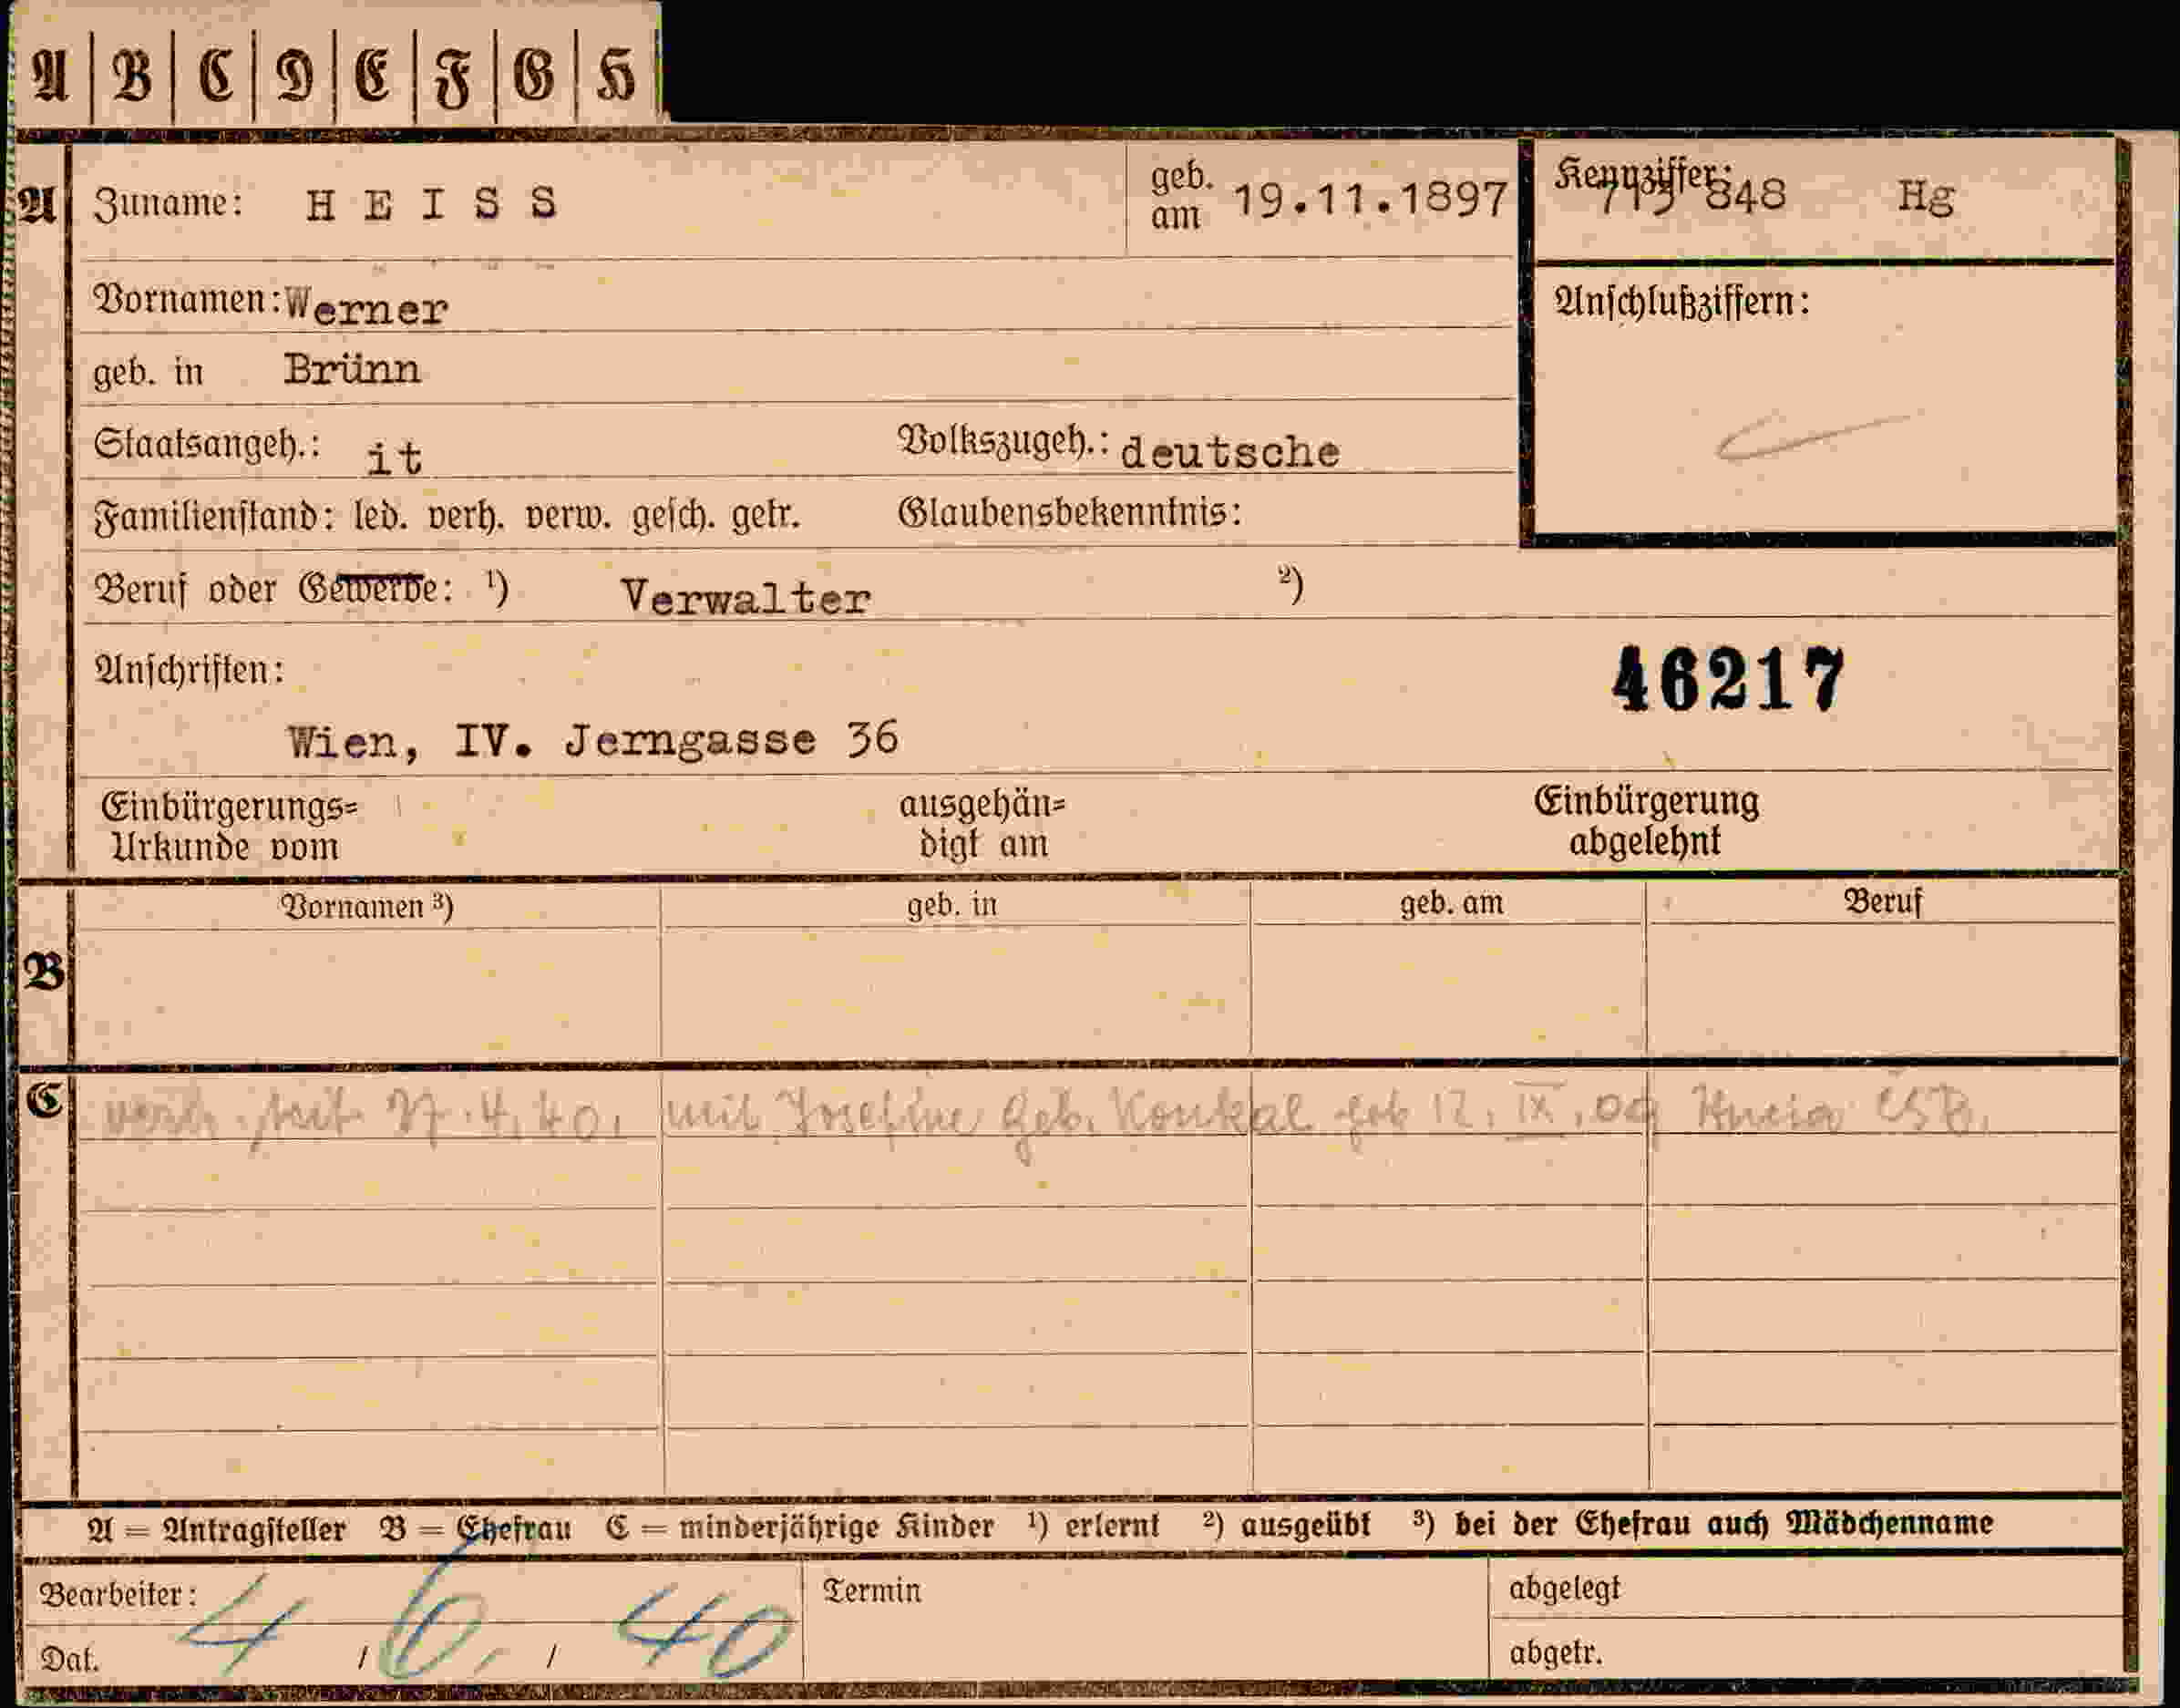 A B C D E F G H
A Zuname: HEISS geb. am 19.11.1897 Kennziffer: 713 848 Hg
Vornamen: Werner Anschlußziffern:
geb. in Brünn
Staatsangeh.: it Volkszugeh.: deutsche
Familienstand: led. verh. verw. gesch. getr. Glaubensbekenntnis:
Beruf oder Gewerbe: ¹) Verwalter ²)
Anschriften: 46217
Wien, IV. Jerngasse 36
Einbürgerungs= ausgehän= Einbürgerung
Urkunde vom digt am abgelehnt
Vornamen ³) geb. in geb. am Beruf
B
C verh. seit 27.4.40. mit Josefine geb. Konkal geb 12. IX. 09
A = Antragsteller B = Ehefrau C = minderjährige Kinder ¹) erlernt ²) ausgeübt ³) bei der Ehefrau auch Mädchenname
Bearbeiter: Termin abgelegt
Dat. 4 / 6. / 40 abgetr.